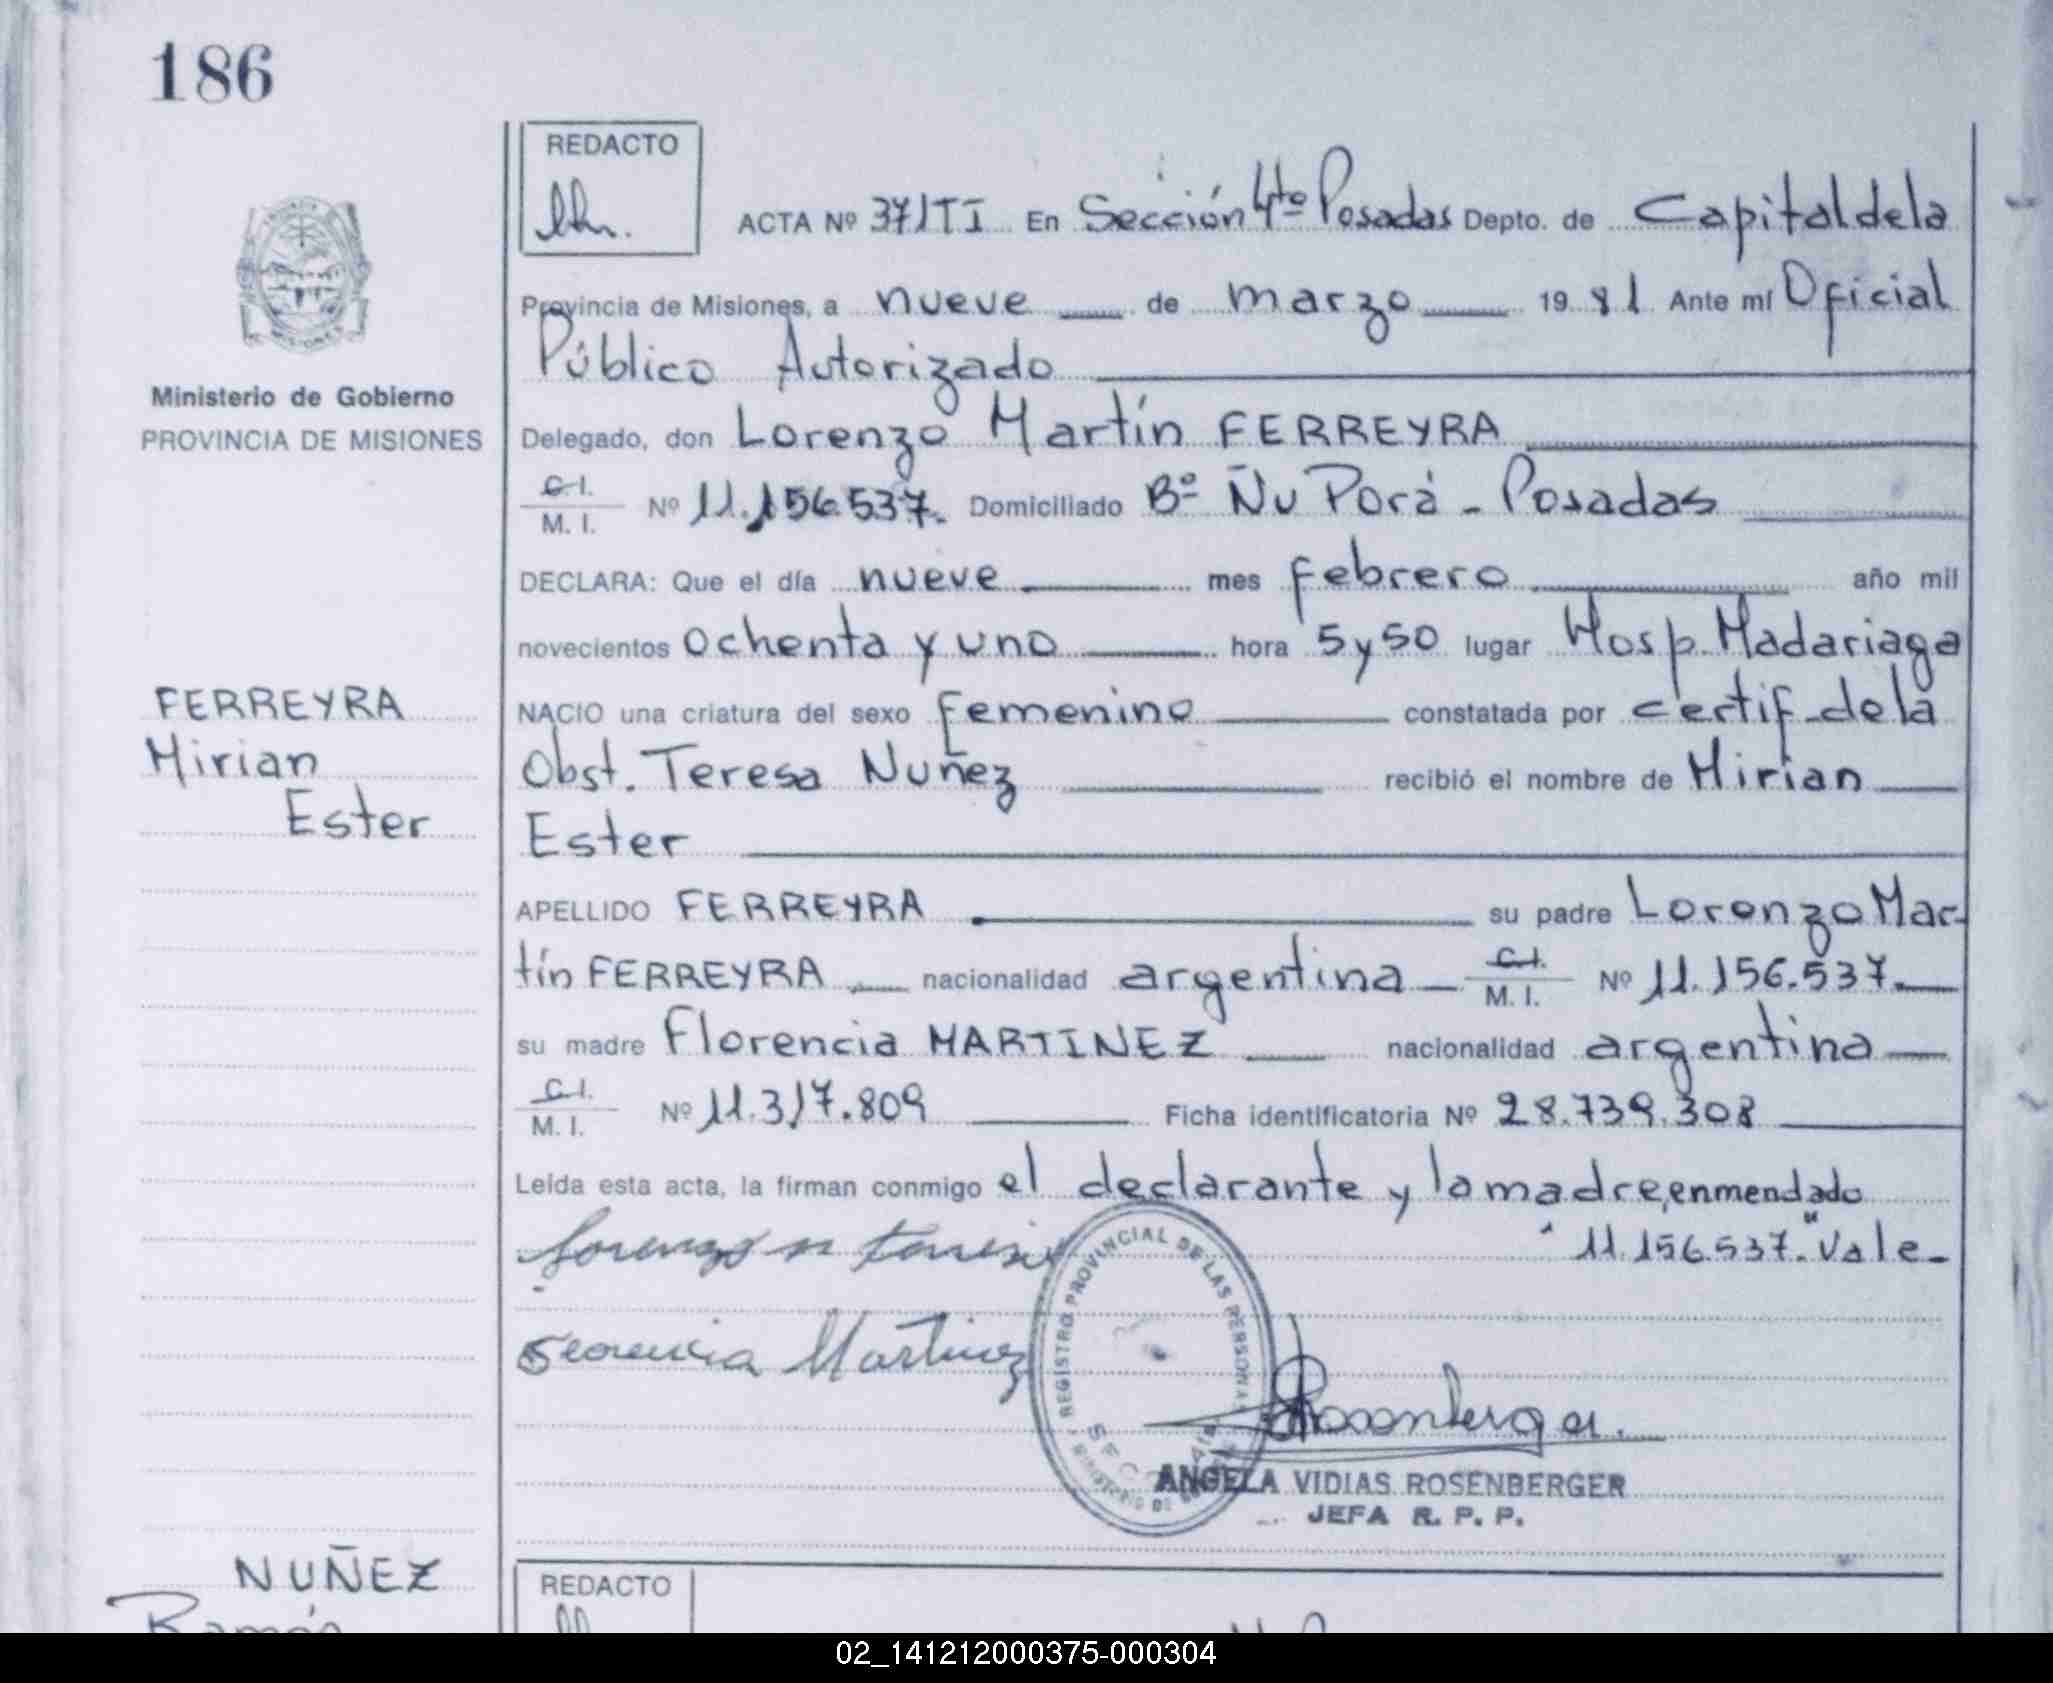 186
REDACTO
ACTA Nº 371TI En Sección 4to Posadas Depto. de Capital de la
Provincia de Misiones, a nueve de marzo 1981 Ante mí Oficial
Público Autorizado
Ministerio de Gobierno
PROVINCIA DE MISIONES
Delegado, don Lorenzo Martín FERREYRA
C.I.
M. I. Nº 11.156.537. Domiciliado Bº Ñu Porá - Posadas
DECLARA: Que el día nueve mes febrero año mil
novecientos ochenta y uno hora 5 y 50 lugar Hosp. Madariaga
FERREYRA
Mirian
Ester
NACIO una criatura del sexo femenino constatada por certif. de la
Obst. Teresa Nuñez recibió el nombre de Mirian
Ester
APELLIDO FERREYRA su padre Lorenzo Mar-
tín FERREYRA nacionalidad argentina C.I.
M. I. Nº 11.156.537.
su madre Florencia MARTINEZ nacionalidad argentina
C.I.
M. I. Nº 11.317.809 Ficha identificatoria Nº 28.739.308
Leída esta acta, la firman conmigo el declarante y la madre, enmendado
"11.156.537." Vale-
Lorenzo m
Florencia Martinez
REGISTRO PROVINCIAL DE LAS PERSONAS
Rosenberger
ANGELA VIDIAS ROSENBERGER
JEFA R. P. P.
NUÑEZ
Ramón
REDACTO
02_141212000375-000304